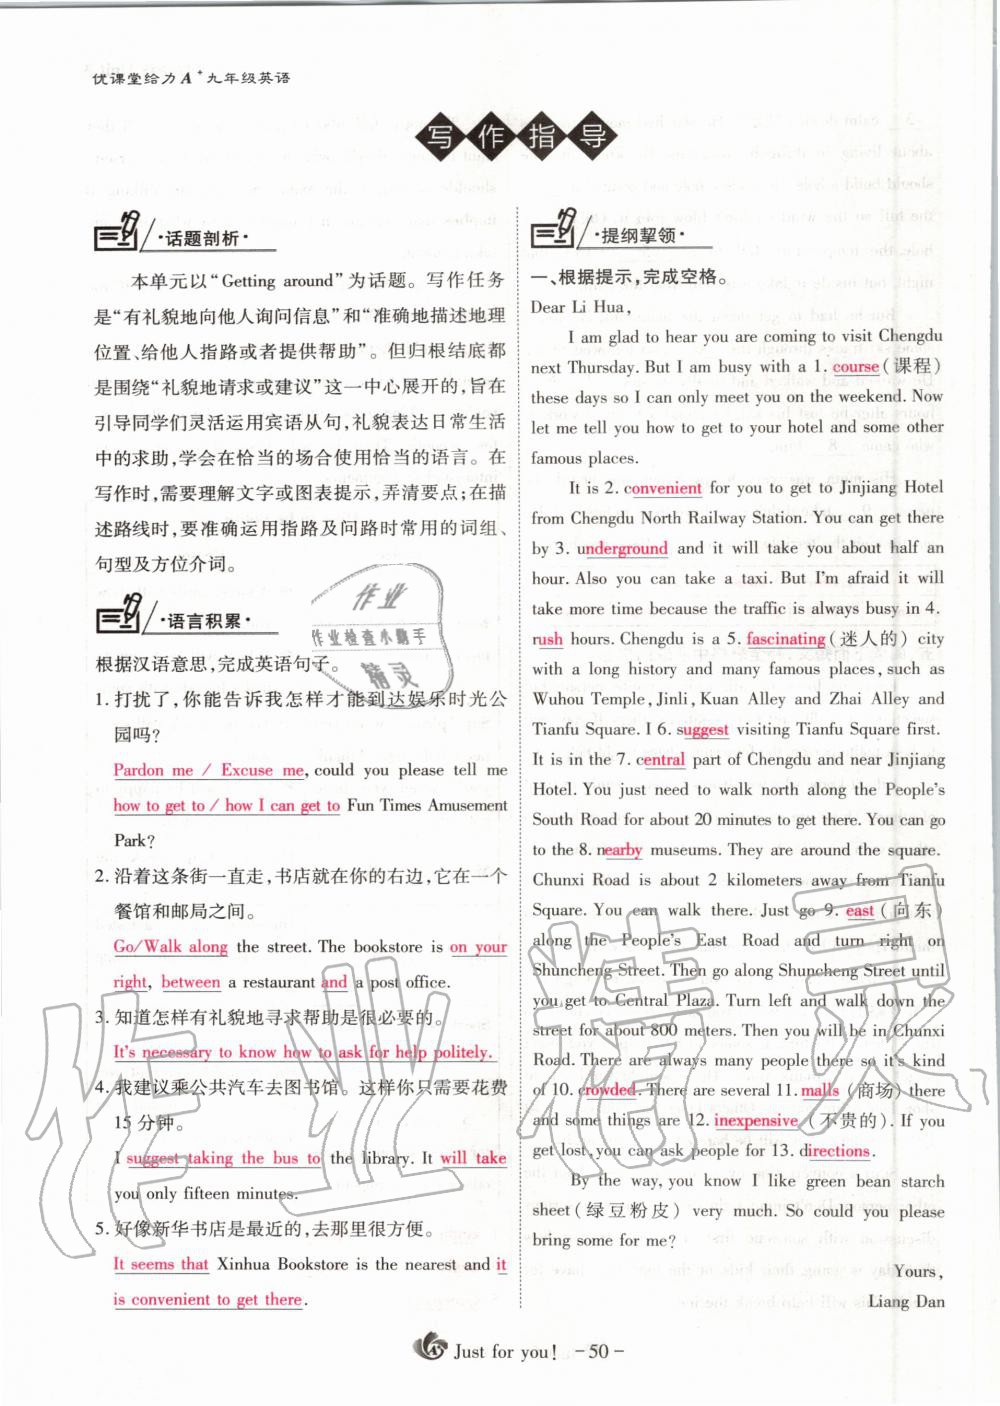 优课堂给力A+九年级英语
写作指导
·话题剖析·
本单元以“Getting around”为话题。写作任务
是“有礼貌地向他人询问信息”和“准确地描述地理
位置、给他人指路或者提供帮助”。但归根结底都
是围绕“礼貌地请求或建议”这一中心展开的,旨在
引导同学们灵活运用宾语从句,礼貌表达日常生活
中的求助,学会在恰当的场合使用恰当的语言。在
写作时,需要理解文字或图表提示,弄清要点;在描
述路线时,要准确运用指路及问路时常用的词组、
句型及方位介词。
·语言积累·
根据汉语意思,完成英语句子。
1. 打扰了,你能告诉我怎样才能到达娱乐时光公
园吗?
Pardon me / Excuse me, could you please tell me
how to get to / how I can get to Fun Times Amusement
Park?
2. 沿着这条街一直走,书店就在你的右边,它在一个
餐馆和邮局之间。
Go/Walk along the street. The bookstore is on your
right, between a restaurant and a post office.
3. 知道怎样有礼貌地寻求帮助是很必要的。
It's necessary to know how to ask for help politely.
4. 我建议乘公共汽车去图书馆。这样你只需要花费
15分钟。
I suggest taking the bus to the library. It will take
you only fifteen minutes.
5. 好像新华书店是最近的,去那里很方便。
It seems that Xinhua Bookstore is the nearest and it
is convenient to get there.
·提纲挈领·
一、根据提示,完成空格。
Dear Li Hua,
I am glad to hear you are coming to visit Chengdu
next Thursday. But I am busy with a 1. course(课程)
these days so I can only meet you on the weekend. Now
let me tell you how to get to your hotel and some other
famous places.
It is 2. convenient for you to get to Jinjiang Hotel
from Chengdu North Railway Station. You can get there
by 3. underground and it will take you about half an
hour. Also you can take a taxi. But I'm afraid it will
take more time because the traffic is always busy in 4.
rush hours. Chengdu is a 5. fascinating(迷人的) city
with a long history and many famous places, such as
Wuhou Temple, Jinli, Kuan Alley and Zhai Alley and
Tianfu Square. I 6. suggest visiting Tianfu Square first.
It is in the 7. central part of Chengdu and near Jinjiang
Hotel. You just need to walk north along the People's
South Road for about 20 minutes to get there. You can go
to the 8. nearby museums. They are around the square.
Chunxi Road is about 2 kilometers away from Tianfu
Square. You can walk there. Just go 9. east(向东)
along the People's East Road and turn right on
Shuncheng Street. Then go along Shuncheng Street until
you get to Central Plaza. Turn left and walk down the
street for about 800 meters. Then you will be in Chunxi
Road. There are always many people there so it's kind
of 10. crowded. There are several 11. malls(商场) there
and some things are 12. inexpensive(不贵的). If you
get lost, you can ask people for 13. directions.
By the way, you know I like green bean starch
sheet(绿豆粉皮) very much. So could you please
bring some for me?
Yours,
Liang Dan
Just for you! -50-
作业
作业检查小助手
精灵
作业精灵